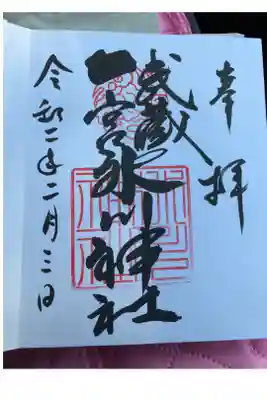 奉拝
武蔵
一宮氷川神社
令和二年二月三日